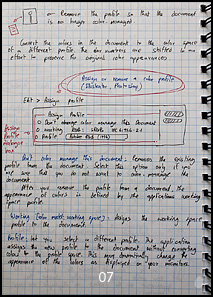 or Remove the profile so that the document
is no longer color-managed
Convert the colors in the document to the color space
of a different profile the document are shifted in an
effort to preserve the original color appearances
Assign or remove a color profile
(Illustrator, Photoshop)
Edit > Assign profile
Assign Profile
Don't color manage this document
working RGB: sRGB IEC 61966-2.1
Profile:
Assign
profile
dialogue
box
Don't color manage this document: removes the existing
profile from the document. Select this option only if you
are sure that you do not want to color-manage the
After you remove the profile from a document, the
appearance of colors is defined by the applications working
space profile.
Working [color model: working space]: assigns the working space
profile to the document.
Profile: lets you select a different profile. The application
assigns the new profile to the document without converting
colors to the profile space. This may dramatically change the
appearance of the colors as displayed on your monitors.
07